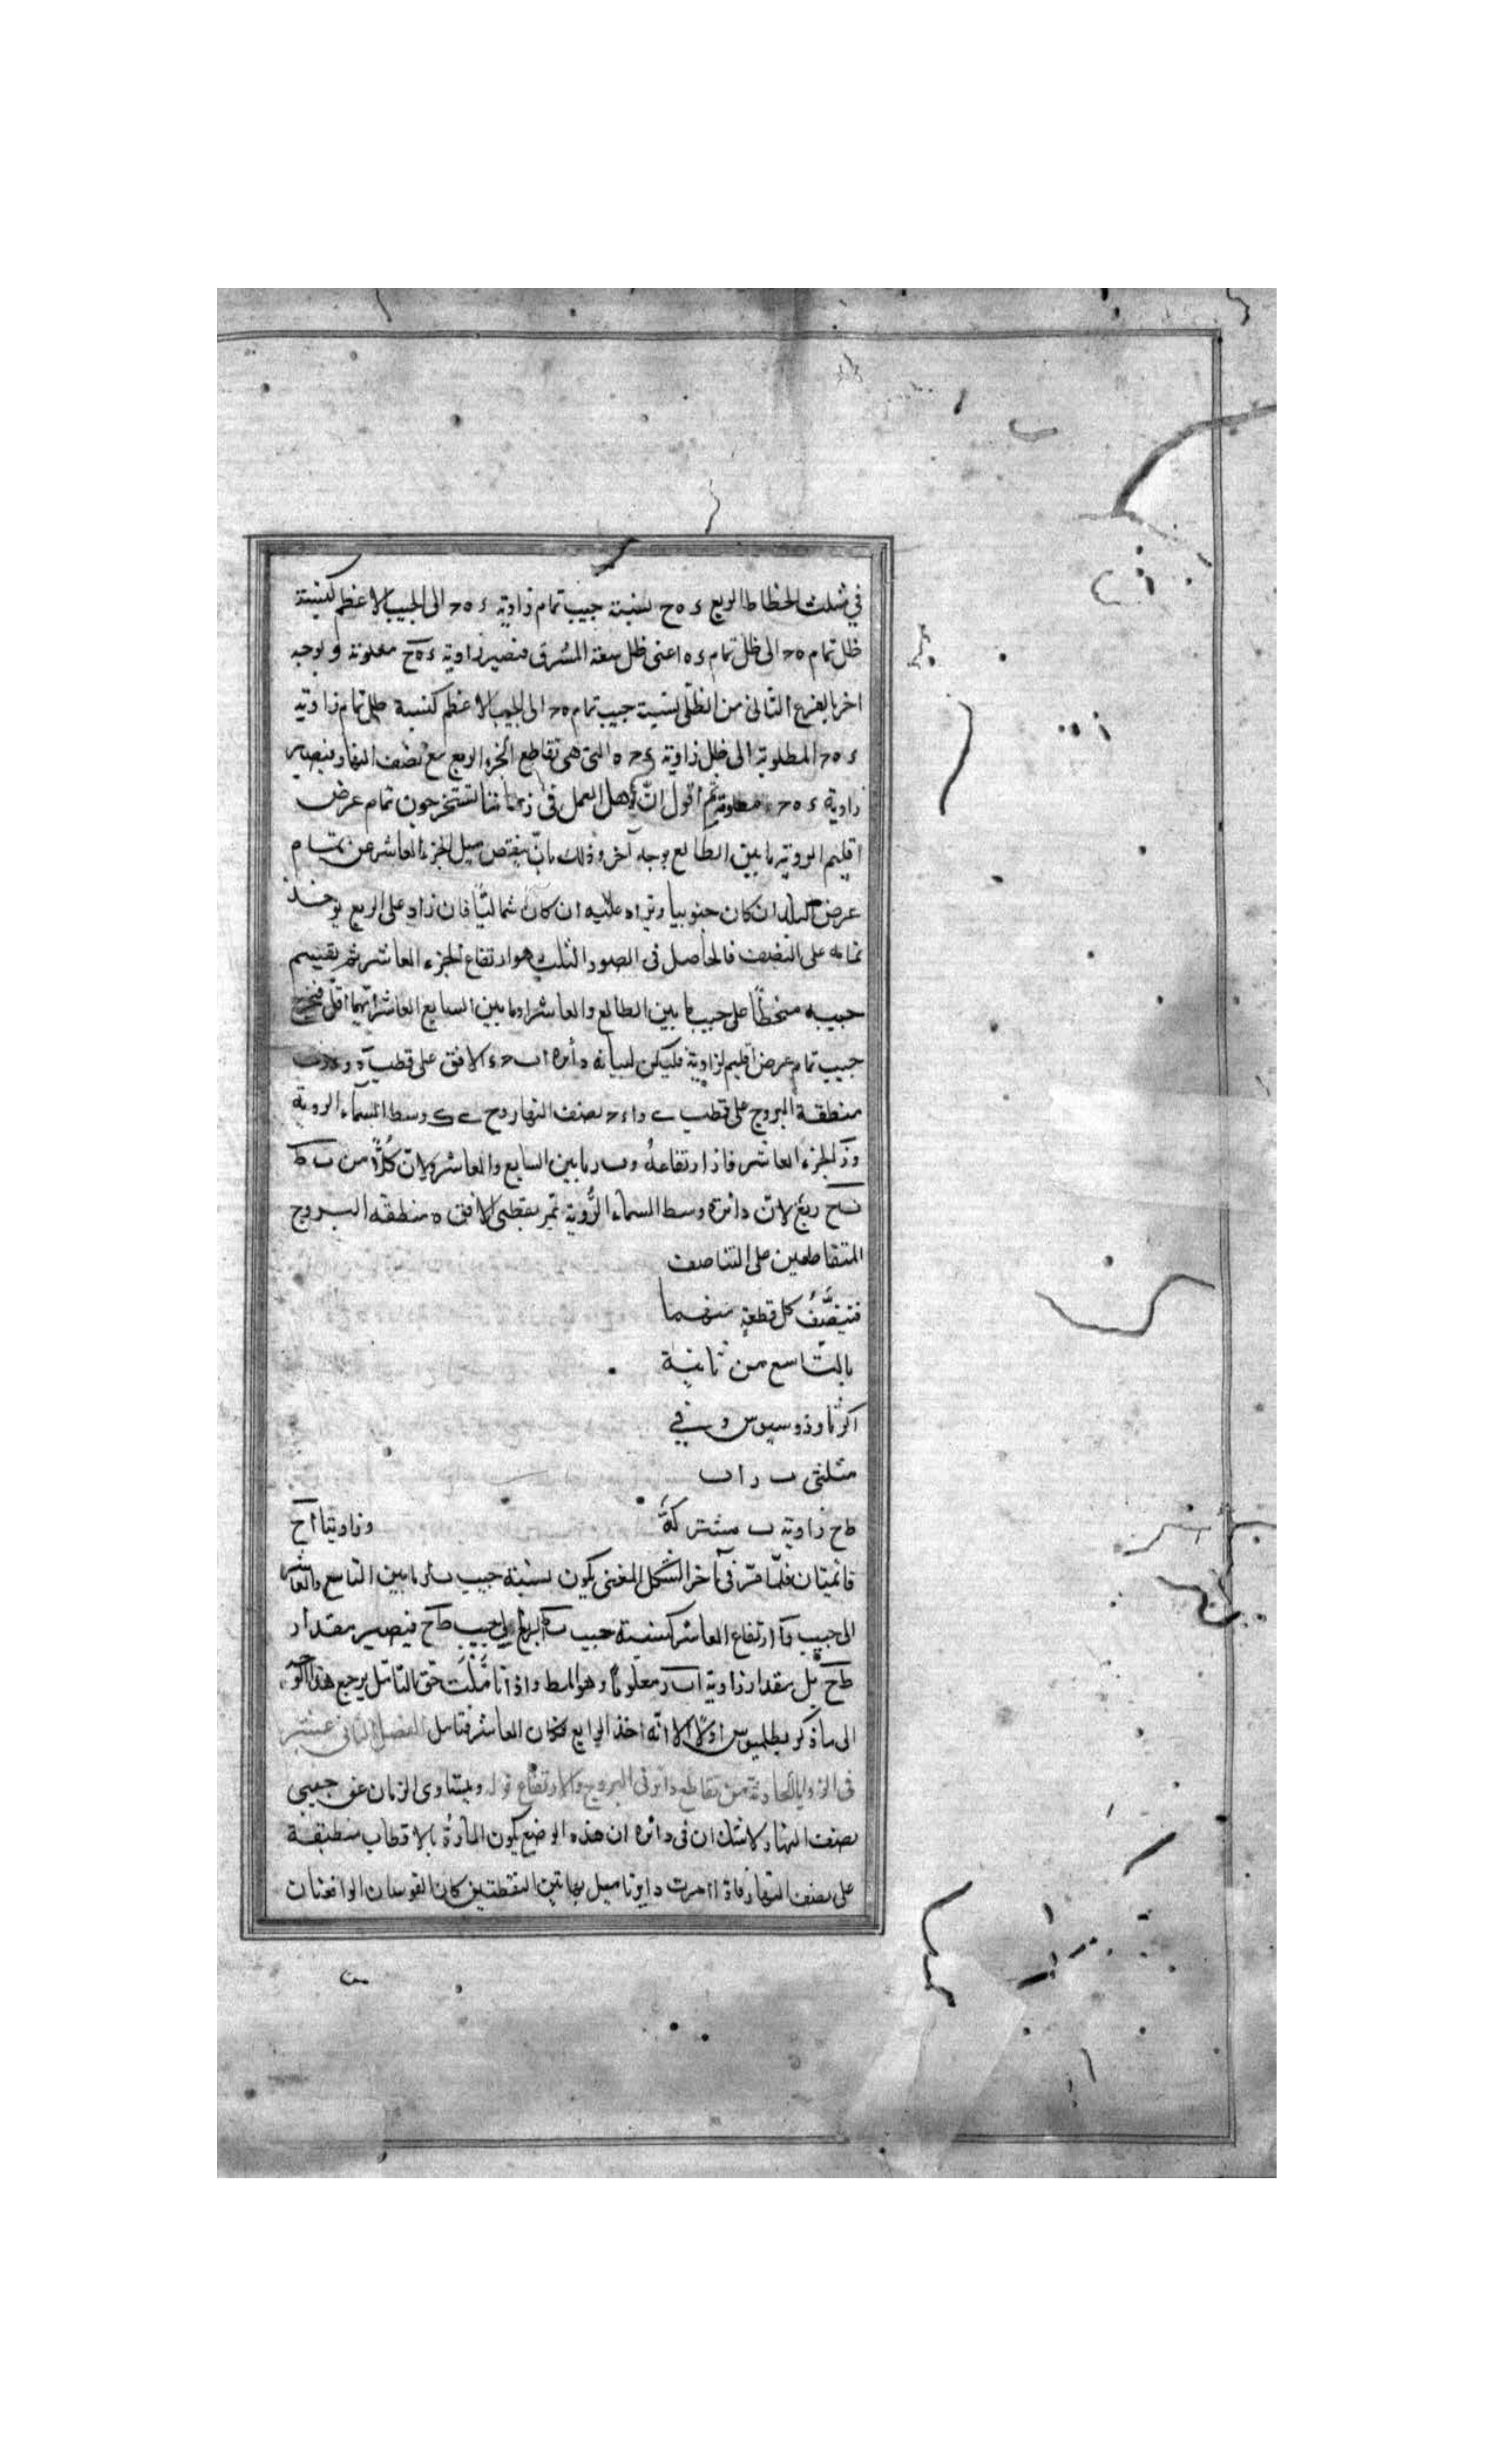 في مثلث انحطاط الربع ء ه ح نسبة جيب تمام زاوية ء ه ح الى الجيب الاعظم كنسبة
ظل تمام ه ح الى ظل تمام ء ه اعنى ظل سعة المشرق فتصير زاوية ء ه ح معلومة وبوجه
اخر بالفرع الثانى من الظلى نسبة جيب تمام ه ح الى الجيب الاعظم كنسبة ظل تمام زاوية
ء ه ح المطلوبة الى ظل زاوية ء ح ه التى هى تقاطع الجزء الربع مع نصف النهار فيصير
زاوية ء ه ح معلومة ثم اقول انّ اهل العمل فى زماننا يستخرجون تمام عرض
اقليم الروية مابين الطالع بوجه آخر وذلك بانّ ينقص ميل الجزء العاشر من تمام
عرض البلد ان كان جنوبيا ويزاد عليه ان كان شماليّا فان زاد على الربع يوخذ
تمامه على النصف فالحاصل فى الصور الثلث هو ارتفاع الجزء العاشر ثم يقسم
جيبه منحطاً على جيب مابين الطالع والعاشر او مابين السابع العاشر ايّهما اقلّ فيخرج
جيب تمام عرض اقليم لزاوية فليكن لبيانه دائره اب ح ء الافق على قطب ه و
منطقة البروج على قطب ے و ا ء ح نصف النهار وح ے ک وسط السماء الروية
وز الجزء العاشر فاز ارتفاعهُ وب ر مابين السابع والعاشر ولانّ كُلّاً من ب ط
ب ح ربعٌ لانّ دائرة وسط السماء الرُّوية تمر بقطبى الافق ه منطقه البروج
المتقاطعين على التناصف
فتنصّفُ كل قطعةٍ منهما
بالتّاسع من ثانية
اكر ثاوذوسيوس وفي
مثلثى ب ر ا ب
ط ح زاوية ب مشتركةٌ وزاويتا ا ح
قائمتان فلمّا مرّ فى آخر الشكل المغنى يكون نسبة جيب ب ر مابين التاسع والعاشر
الى جيب را ارتفاع العاشر كنسبة جيب ب ط الربع الى جيب ط ح فيصير مقدار
ط ح بل مقدار زاوية ا ب ر معلوماً وهو المط واذا تأمّلْتَ حق التامل يرجع هذا الوجه
الى ماذكر بطليموس اوّلاً الا انّه اخذ الرابع مكان العاشر فتامل الفصل الثانى عشر
فى الزوايا الحادثة من تقاطع دائرتى البروج والارتفاع قوله ويتساوى الزمان عن جنبى
نصف النهار لا شك ان فى دائرة ان هذه الوضع يكون المارّة بالاقطاب منطبقة
على نصف النهار فاذا امرت دايرتا ميل بهاتين النقطتين كان القوسان الواقعتان